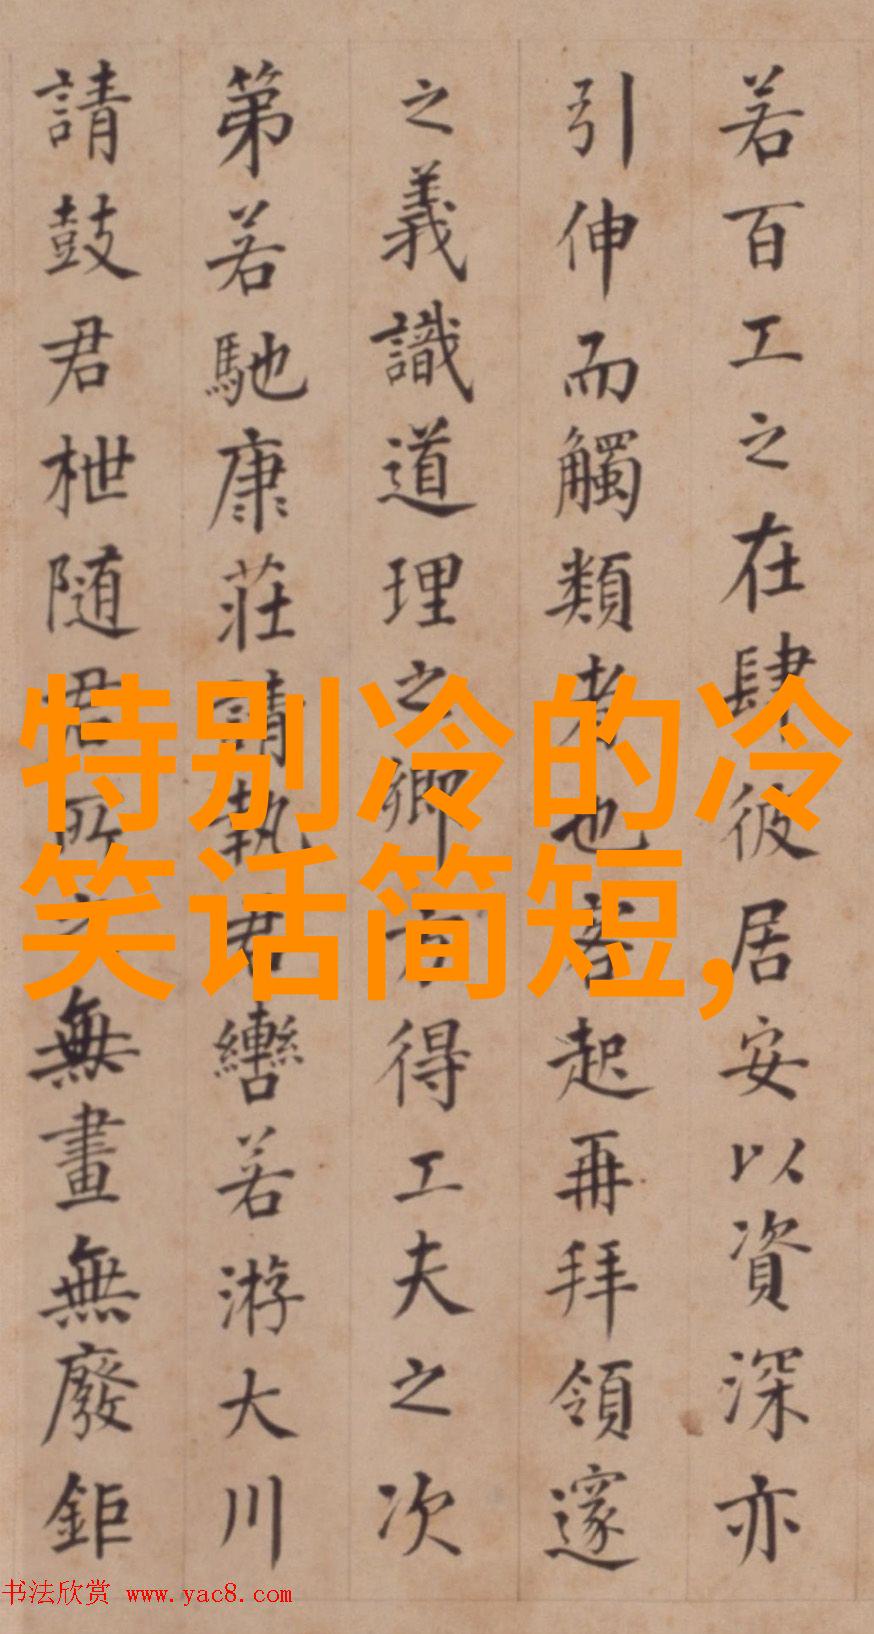 若百工之在肆彼居安以資深亦
引伸而觸類者也客起再拜領遂
之義識道理之鄉方得工夫之次
第若馳康莊請執君轡若游大川
請鼓君枻随君所之無畫無廢鉅
特别冷的冷
笑话简短,
书法欣赏 www.yac8.com